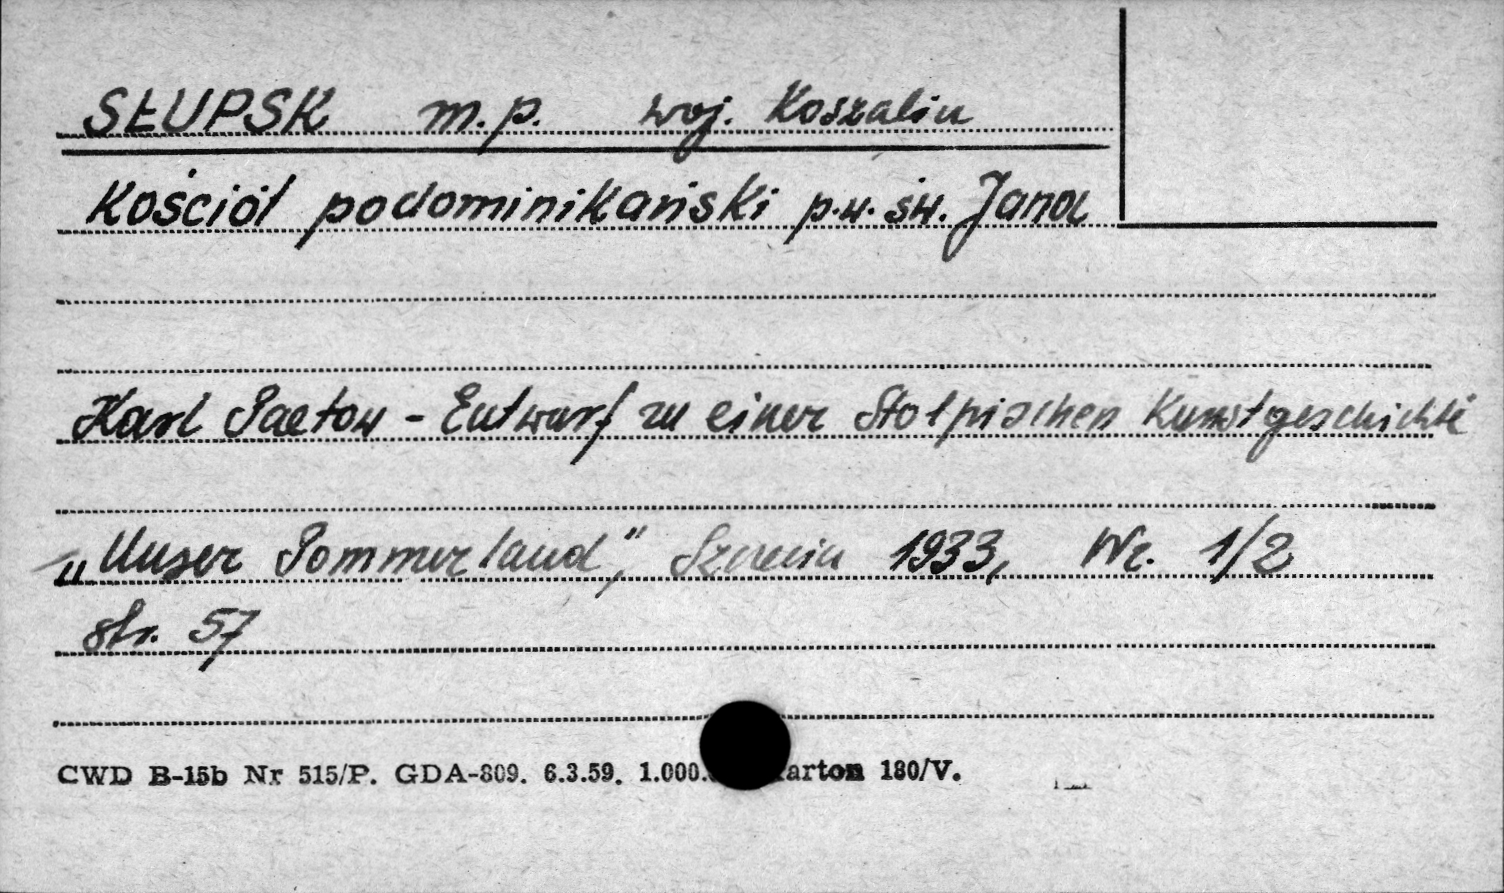 SŁUPSK m.p. woj. Koszalin
Kościół podominikański p.w. św. Jana
Karl Paetow - Entwurf zu einer Stolpischen Kunstgeschichte
„Unser Pommerland", Szczecin 1933, Nr. 1/2
str. 57
CWD B-15b Nr 515/P. GDA-809. 6.3.59. 1.000. arton 180/V.